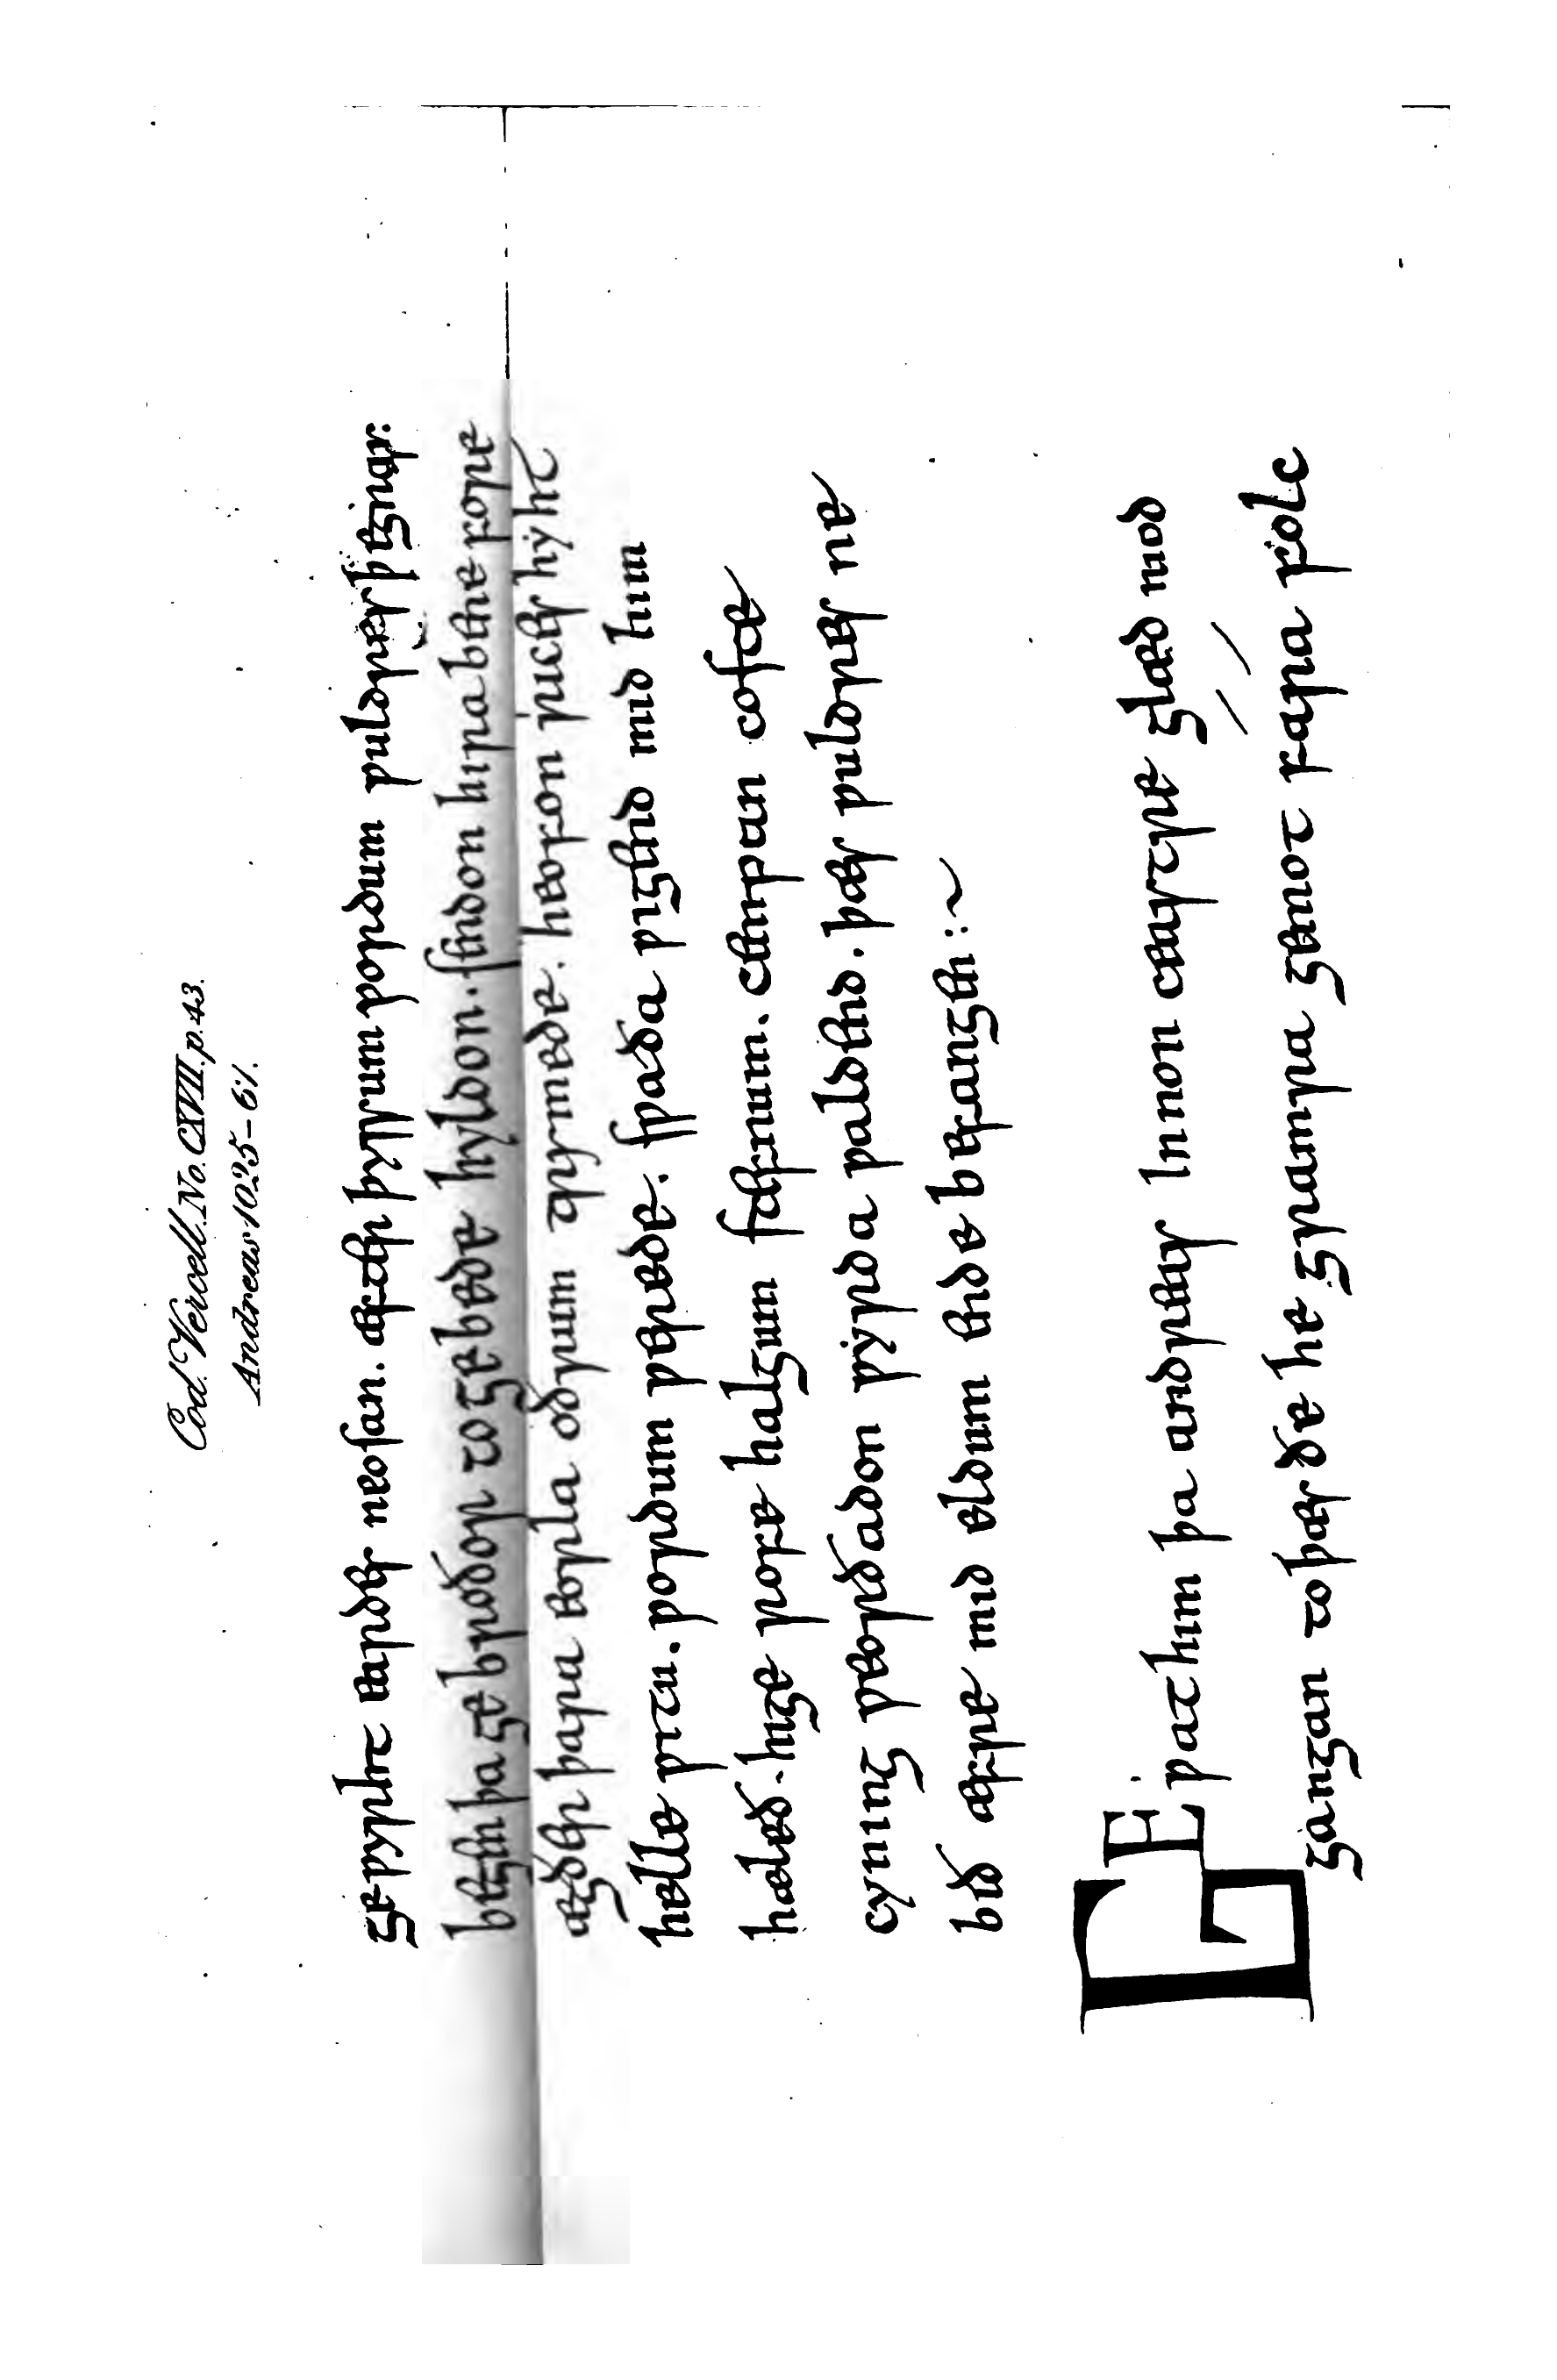 Cod. Vercell. No. CXVII. p. 43.
Andreas 1025–61.
geƿyrht eardes neosan. æfter þyssum ƿordum ƿuldres þegnas:
begen þa gebroðor to gebede hyldon. sendon hira bene fore
ægðer þara eorla oðrum trymede. heofon rices hyht
helle ƿitu. ƿordum ƿerede. sƿa ða ƿigend mid him
hæleð. hige rofe halgum stefnum. cempan coste
cyning ƿeorðadon ƿyrda ƿaldend. þæs ƿuldres ne
bið æfre mid eldum ende befangen :~
GE ƿat him þa andreas Innon ceastre glæd mod
gangan to þæs ðe he gramra gemot fara folc